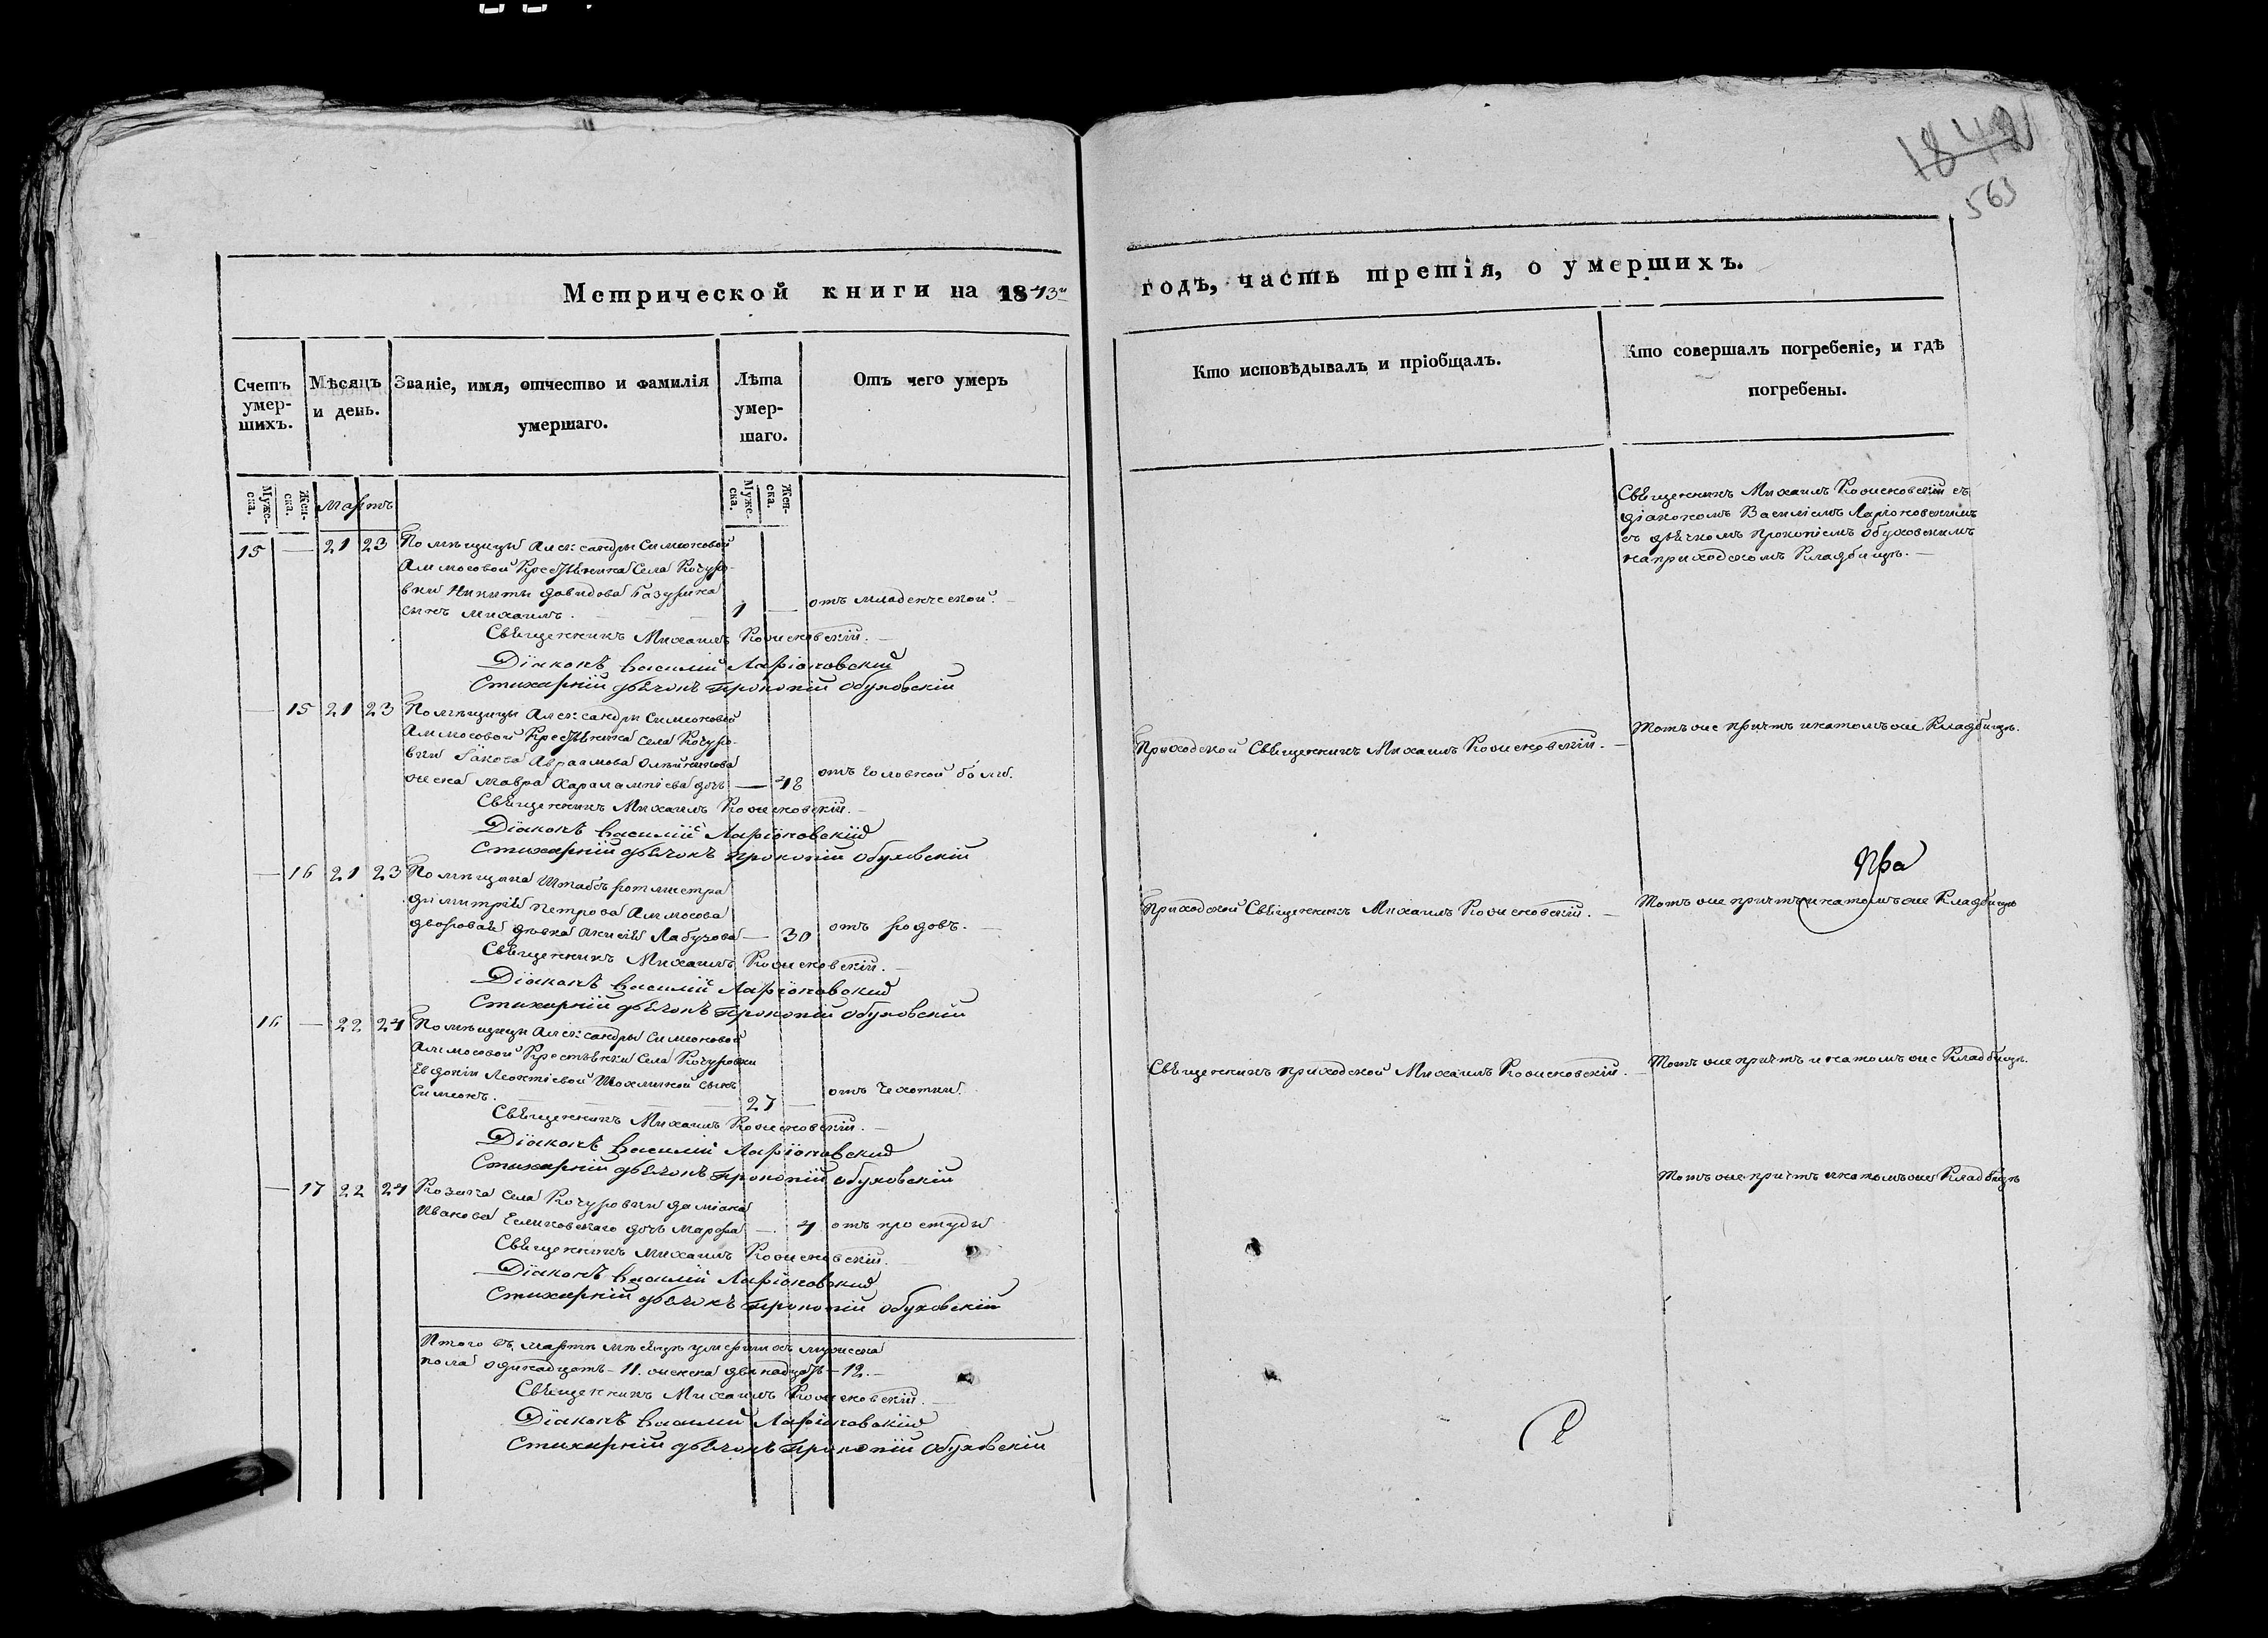 1842
563
Метрической книги на 1843й годъ, часть третія, о умершихъ.
Счетъ умер-шихъ.
Мѣсяцъ и день.
Званіе, имя, отчество и фамилія умершаго.
Лѣта умер-шаго.
Отъ чего умеръ
Кто исповѣдывалъ и пріобщалъ.
Кто совершалъ погребеніе, и гдѣ погребены.
Муже-ска.
Жен-ска.
Мартъ
Муже-ска.
Жен-ска.
15 — 21 23 Помѣщицы Александры Симеоновой
Алимосовой Крестьянина Села Кочуро-
вки Никиты Давидова Базурина
сынъ Михаилъ. 1 — отъ младенческой.
Священникъ Михаилъ Коженовскій с
діакономъ Василіемъ Ларіоновскимъ
съ дьячкомъ Прокопіемъ Обуховскимъ
на приходскомъ Кладбищѣ. —
Священникъ Михаилъ Коженовскій. —
Діаконъ Василій Ларіоновскій
Стихарній дьячокъ Прокопій Обуховскій
— 15 21 23 Помѣщицы Александры Симеоновой
Алимосовой Крестьянина села Кочуро-
вки Іакова Авраамова Олейникова
жена Мавра Харалампіева дочь — 48 отъ головной боли.
Приходской Священникъ Михаилъ Коженовскій. —
Тотъ же причтъ и на томъ же Кладбищѣ.
Священникъ Михаилъ Коженовскій. —
Діаконъ Василій Ларіоновскій
Стихарній дьячокъ Прокопій Обуховскій
— 16 21 23 Помѣщика Штабсъ ротмистра
Димитрія Петрова Алимосова
дворовая дѣвка Лабузова — 30 отъ родовъ. —
Приходской Священникъ Михаилъ Коженовскій. —
Тотъ же причтъ и на томъ же Кладбищѣ
Священникъ Михаилъ Коженовскій. —
Діаконъ Василій Ларіоновскій
Стихарній дьячокъ Прокопій Обуховскій
16 — 22 24 Помѣщицы Александры Симеоновой
Алимосовой Крестьянки Села Кочуровки
Евдокіи Леонтіевой сынъ
Симеонъ. 27 — отъ Чехотки.
Священникъ приходской Михаилъ Коженовскій. —
Тотъ же причтъ и на томъ же Кладбищѣ.
Священникъ Михаилъ Коженовскій. —
Діаконъ Василій Ларіоновскій
Стихарній дьячокъ Прокопій Обуховскій
— 17 22 24 Козака Села Кочуровки Даміана
Иванова дочь Марфа — 4 отъ простуды
Тотъ же причтъ и на томъ же Кладбищѣ
Священникъ Михаилъ Коженовскій.
Діаконъ Василій Ларіоновскій
Стихарній дьячокъ Прокопій Обуховскій
Итого въ мартѣ мѣсяцѣ умершихъ мужеска
пола одинадцать — 11. женска двѣнадцать — 12. —
Священникъ Михаилъ Коженовскій. —
Діаконъ Василій Ларіоновскій
Стихарній дьячокъ Прокопій Обуховскій